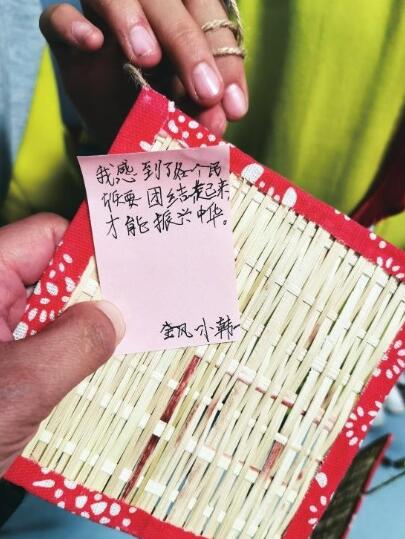 我感到了各个民
族要团结起来
才能振兴中华。
金凤小韩